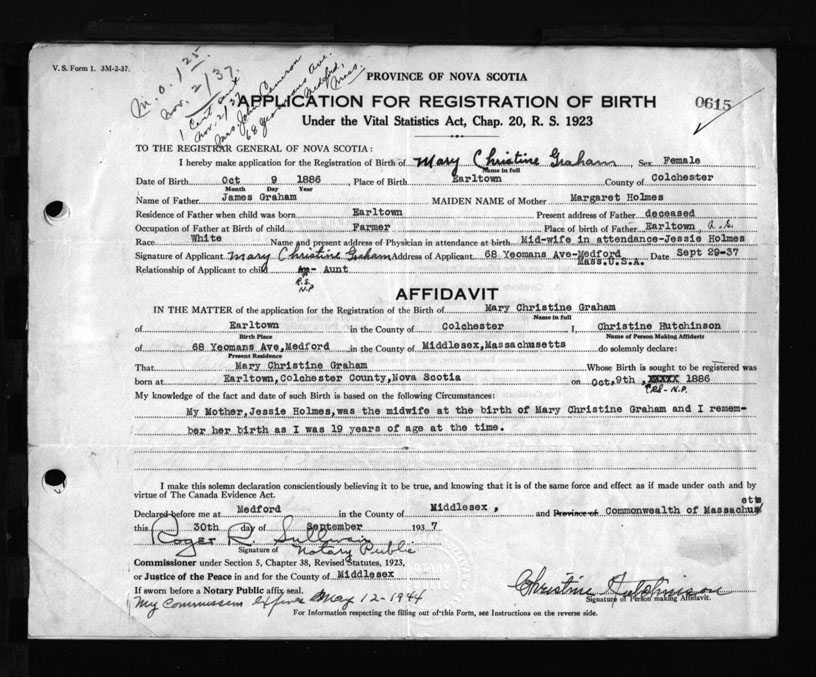 V. S. Form 1. 3M-2-37.
M.O. 1 25
Nov. 2/37.
1 Cert sent
Nov 2/37
Mrs John Cameron
68 Yeomans Ave.
Medford,
Mass.
PROVINCE OF NOVA SCOTIA
APPLICATION FOR REGISTRATION OF BIRTH
0615
Under the Vital Statistics Act, Chap. 20, R. S. 1923
TO THE REGISTRAR GENERAL OF NOVA SCOTIA:
I hereby make application for the Registration of Birth of Mary Christine Graham, Sex Female
Name in full
Date of Birth Oct 9 1886, Place of Birth Earltown County of Colchester
Month Day Year
Name of Father James Graham MAIDEN NAME of Mother Margaret Holmes
Residence of Father when child was born Earltown Present address of Father deceased
Occupation of Father at Birth of child Farmer Place of birth of Father Earltown,
Race White Name and present address of Physician in attendance at birth Mid-wife in attendance-Jessie Holmes
Signature of Applicant Mary Christine Graham Address of Applicant 68 Yeomans Ave-Medford Date Sept 29-37
Mass.U.S.A.
Relationship of Applicant to child Aunt
R.S.
N.P
AFFIDAVIT
IN THE MATTER of the application for the Registration of the Birth of Mary Christine Graham
Name in full
of Earltown in the County of Colchester I, Christine Hutchinson
Birth Place Name of Person Making Affidavit
of 68 Yeomans Ave,Medford in the County of Middlesex,Massachusetts do solemnly declare:
Present Residence
That Mary Christine Graham Whose Birth is sought to be registered was
born at Earltown,Colchester County,Nova Scotia on Oct.9th, XXXXX 1886
RS-N.P.
My knowledge of the fact and date of such Birth is based on the following Circumstances:
My Mother,Jessie Holmes,was the midwife at the birth of Mary Christine Graham and I remem-
ber her birth as I was 19 years of age at the time.
I make this solemn declaration conscientiously believing it to be true, and knowing that it is of the same force and effect as if made under oath and by
virtue of The Canada Evidence Act.
Declared before me at Medford in the County of Middlesex, and Province of Commonwealth of Massachusetts
this 30th day of September 1937
Roger R. Sullivan
Signature of Notary Public
Commissioner under Section 5, Chapter 38, Revised Statutes, 1923,
or Justice of the Peace in and for the County of Middlesex
If sworn before a Notary Public affix seal.
My Commission expires May 12-1944
Christine Hutchinson
Signature of Person making Affidavit.
For Information respecting the filling out of this Form, see Instructions on the reverse side.